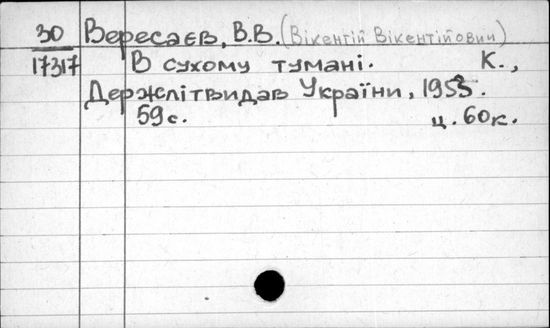 30 Вересаєв, В.В. (Вікентій Вікентійович)
17317 В сухому тумані. К.,
Держлітвидав України, 1953.
59с. ц. 60к.